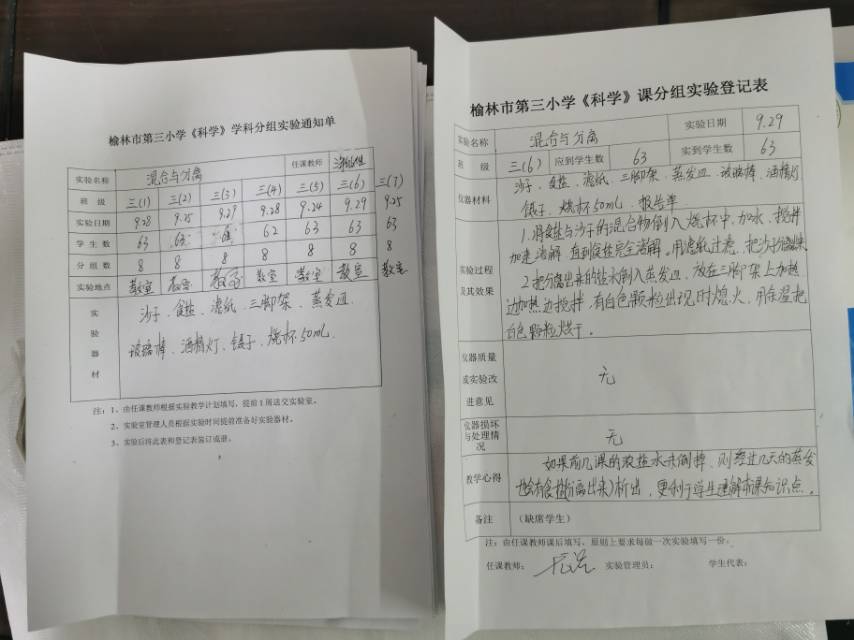 榆林市第三小学《科学》学科分组实验通知单
实验名称 混合与分离 任课教师
班 级 三(1) 三(2) 三(3) 三(4) 三(5) 三(6) 三(7)
实验日期 9.28 9.25 9.27 9.28 9.24 9.29 9.25
学 生 数 63 62 63 63 63
分 组 数 8 8 8 8 8 8 8
实验地点 教室 教室 教室 教室 教室 教室 教室
实验器材 沙子、食盐、滤纸、三脚架、蒸发皿
玻璃棒、酒精灯、镊子、烧杯50mL.
注:1、由任课教师根据实验教学计划填写,提前1周送交实验室。
2、实验室管理人员根据实验时间提前准备好实验器材。
3、实验后将此表和登记表装订成册。
榆林市第三小学《科学》课分组实验登记表
实验名称 混合与分离 实验日期 9.29
班 级 三(6) 应到学生数 63 实到学生数 63
仪器材料 沙子、食盐、滤纸、三脚架、蒸发皿、玻璃棒、酒精灯
镊子、烧杯50mL、报告单
实验过程及其效果 1.将食盐与沙子的混合物倒入烧杯中,加水,搅拌
加速溶解,直到食盐完全溶解。用滤纸过滤,把沙子分离出来
2.把分离出来的盐水倒入蒸发皿,放在三脚架上加热
边加热边搅拌,有白色颗粒出现时熄火,用余温把
白色颗粒烘干。
仪器质量或实验改进意见 无
仪器损坏与处理情况 无
教学心得 如果前几课的浓盐水未倒掉,则经过几天的蒸发
也会有食盐析出,更利于学生理解本课知识点。
备注 (缺席学生)
注:由任课教师课后填写,原则上要求每做一次实验填写一份。
任课教师: 实验管理员: 学生代表: